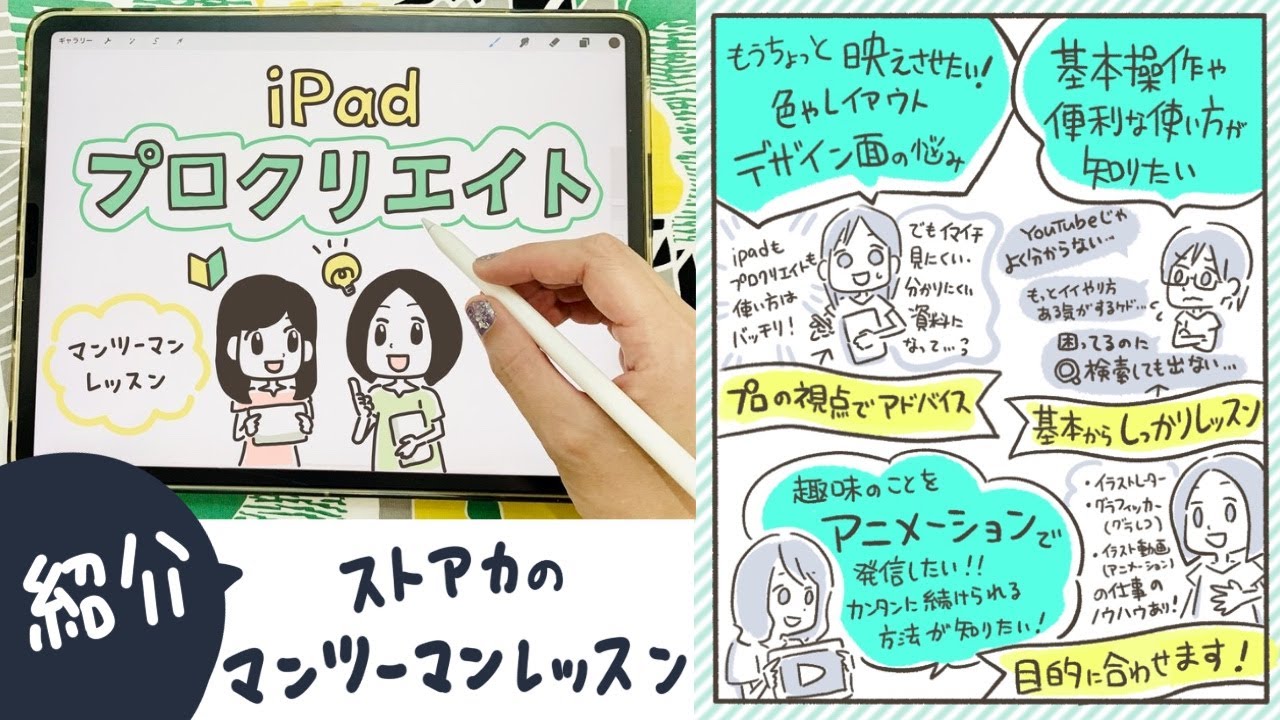 ギャラリー
iPad
プロクリエイト
マンツーマン
レッスン
紹介
ストアカの
マンツーマンレッスン
もうちょっと映えさせたい!
色やレイアウト
デザイン面の悩み
基本操作や
便利な使い方が
知りたい
ipadも
プロクリエイトも
使い方は
バッチリ!
でもイマイチ
見にくい・
分かりにくい
資料に
なって…?
YouTubeじゃ
よく分からない…
もっとイイやり方
ある気がするケド…
困ってるのに
検索しても出ない…
プロの視点でアドバイス
基本からしっかりレッスン
趣味のことを
アニメーションで
発信したい!!
カンタンに続けられる
方法が知りたい!
・イラストレーター
・グラフィッカー
(グラレコ)
・イラスト動画
(アニメーション)
の仕事の
ノウハウあり!
目的に合わせます!